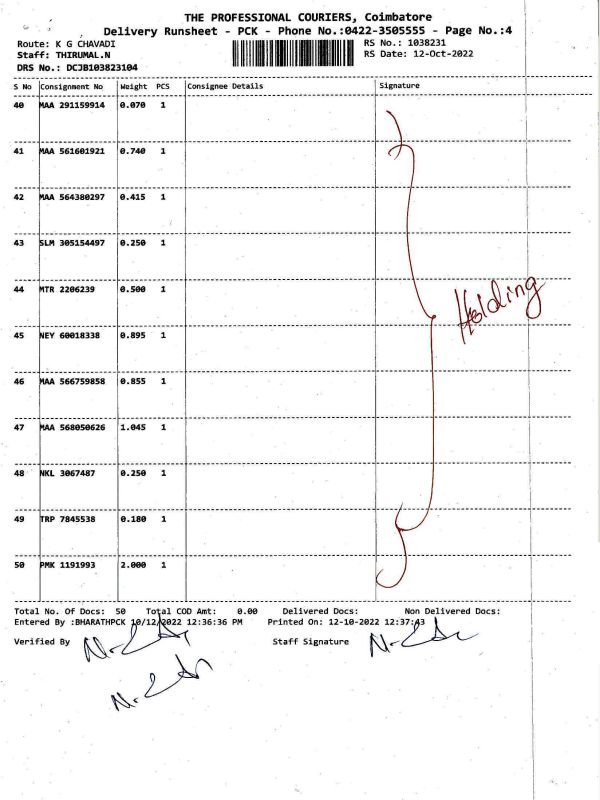 THE PROFESSIONAL COURIERS, Coimbatore
Delivery Runsheet - PCK - Phone No.:0422-3505555 - Page No.:4
Route: K G CHAVADI
RS No.: 1038231
Staff: THIRUMAL.N
RS Date: 12-Oct-2022
DRS No.: DCJB103823104
S No Consignment No Weight PCS Consignee Details Signature
40 MAA 291159914 0.070 1
41 MAA 561601921 0.740 1
42 MAA 564380297 0.415 1
43 SLM 305154497 0.250 1
44 MTR 2206239 0.500 1
Holding
45 NEY 60018338 0.895 1
46 MAA 566759858 0.855 1
47 MAA 568050626 1.045 1
48 NKL 3067487 0.250 1
49 TRP 7845538 0.180 1
50 PMK 1191993 2.000 1
Total No. Of Docs: 50 Total COD Amt: 0.00 Delivered Docs: Non Delivered Docs:
Entered By :BHARATHPCK 10/12/2022 12:36:36 PM Printed On: 12-10-2022 12:37:43
Verified By Staff Signature